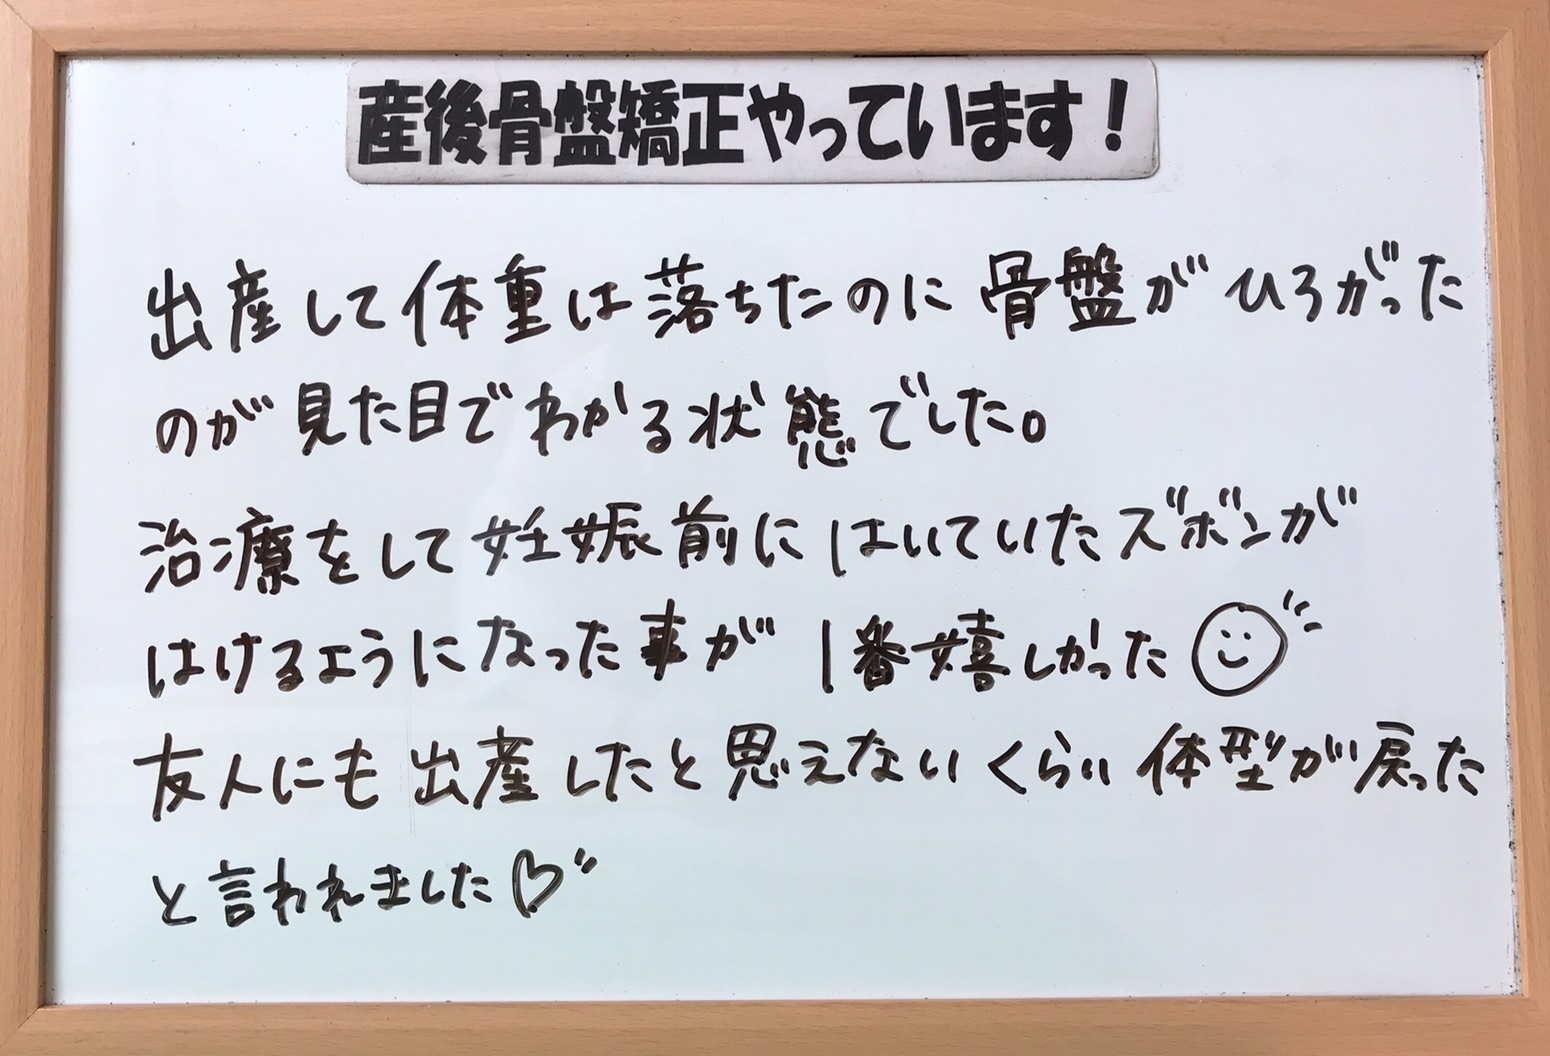 産後骨盤矯正やっています！
出産して体重は落ちたのに骨盤がひろがった
のが見た目でわかる状態でした。
治療をして妊娠前にはいていたズボンが
はけるようになった事が1番嬉しかった
友人にも出産したと思えないくらい体型が戻った
と言われました♡